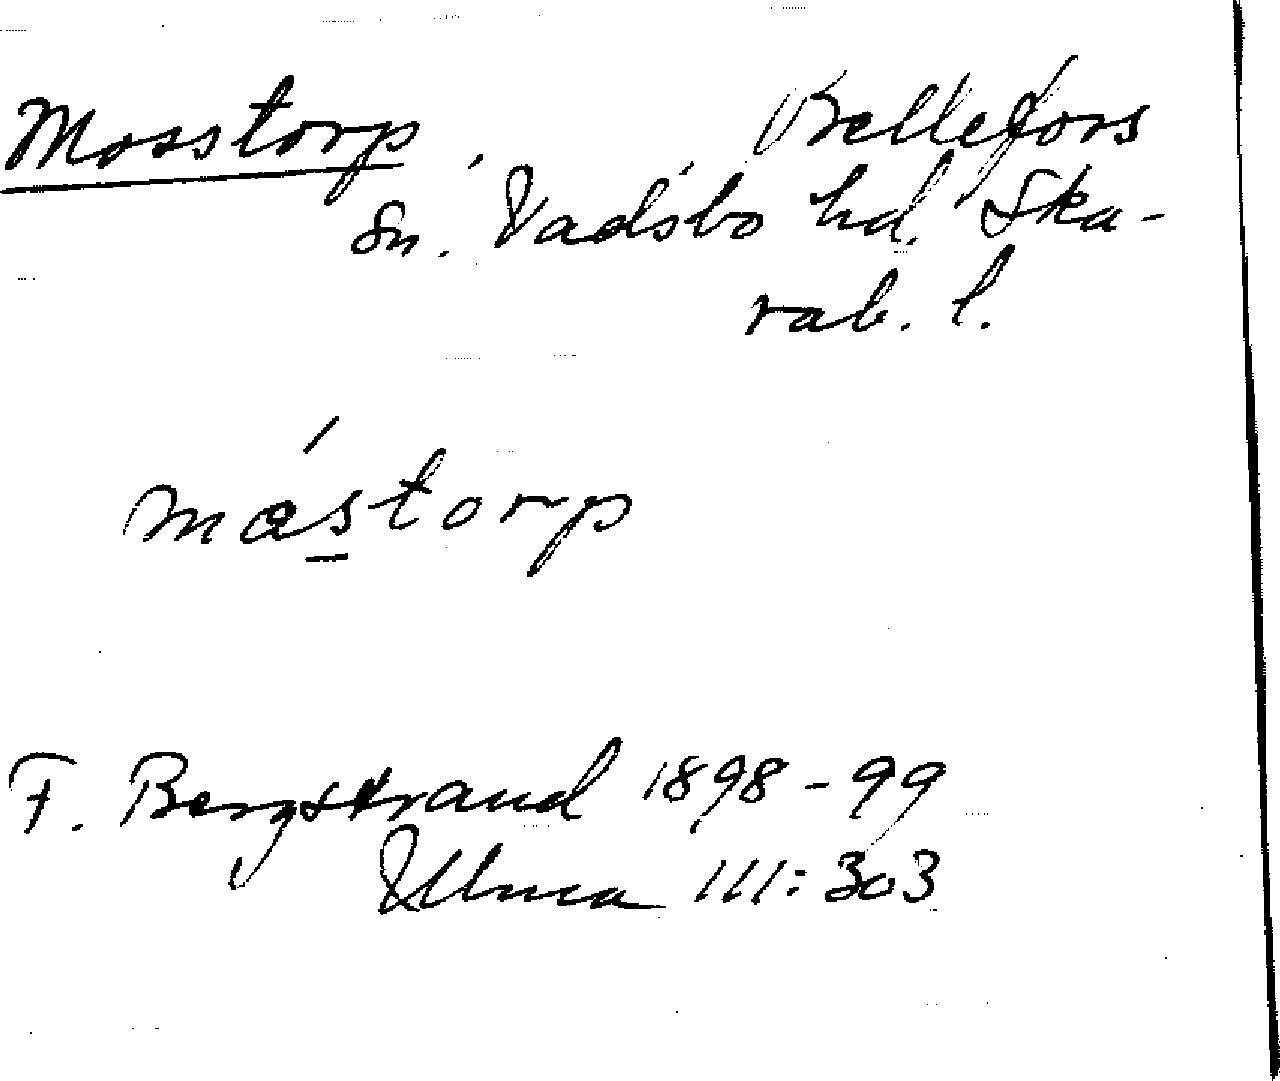 Mosstorp, Bellefors
Sn. Vadsbo hd. Ska-
rab. l.
mǻs̲torp
F. Bergstrand 1898-99
Ulma 111:303